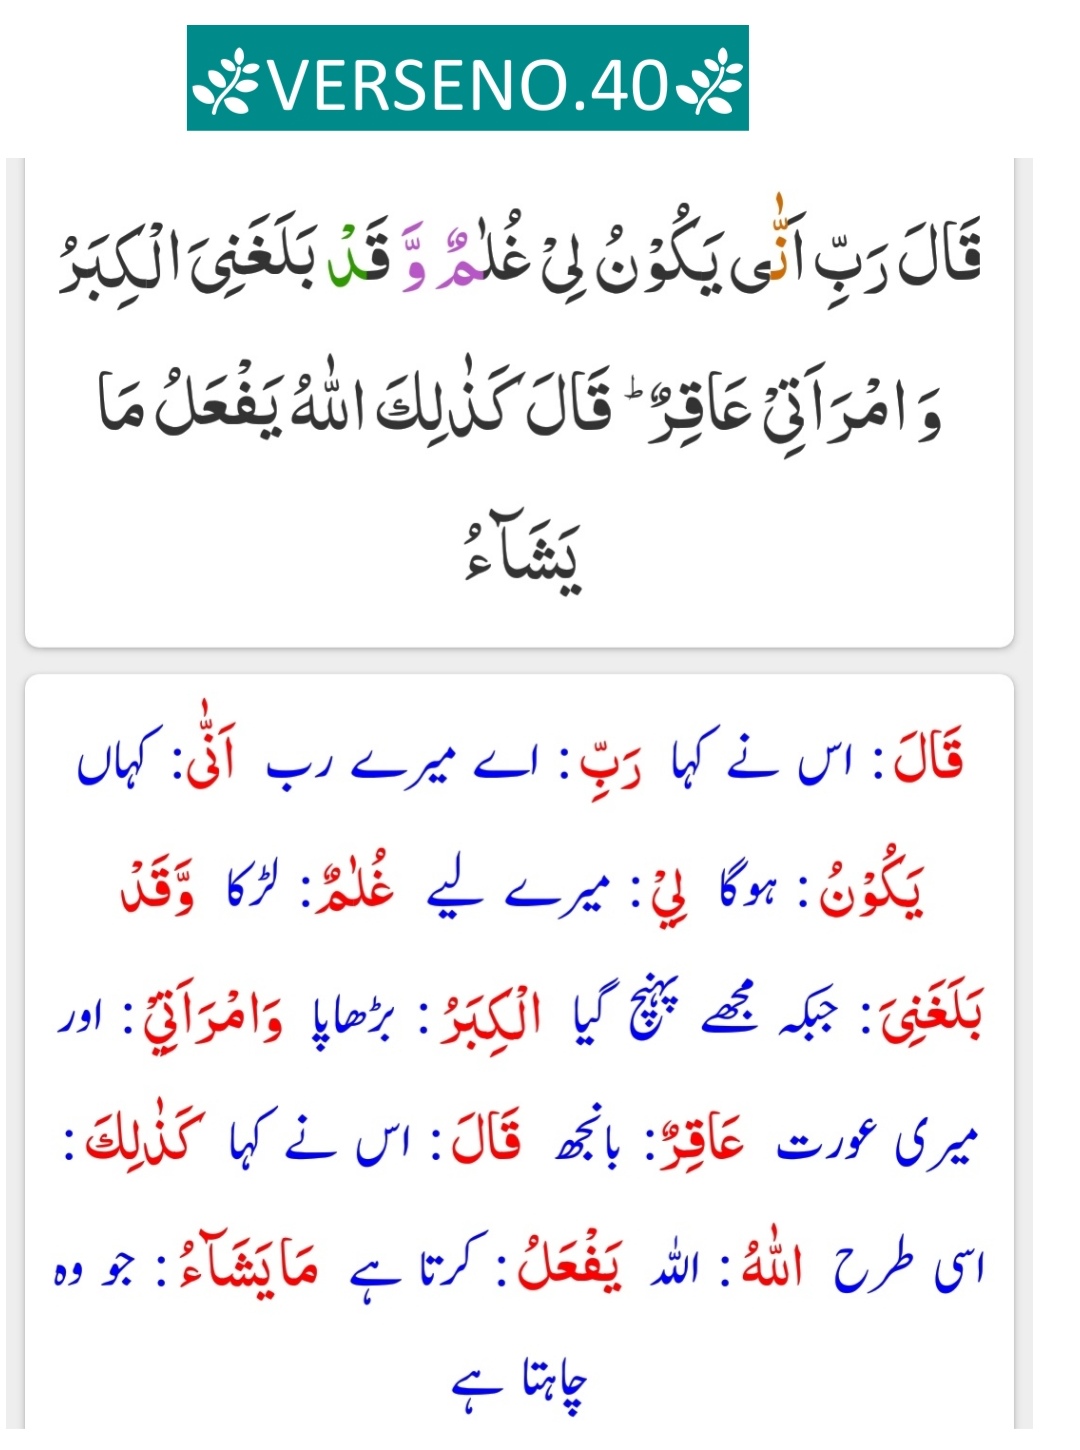 VERSENO.40
قَالَ رَبِّ اَنّٰى يَكُوْنُ لِىْ غُلٰمٌ وَّ قَدْ بَلَغَنِىَ الْكِبَرُ
وَ امْرَاَتِىْ عَاقِرٌ ؕ قَالَ كَذٰلِكَ اللّٰهُ يَفْعَلُ مَا
يَشَآءُ
قَالَ : اس نے کہا رَبِّ : اے میرے رب اَنّٰى : کہاں
يَكُوْنُ : ہوگا لِيْ : میرے لیے غُلٰمٌ : لڑکا وَّقَدْ
بَلَغَنِىَ : جبکہ مجھے پہنچ گیا الْكِبَرُ : بڑھاپا وَامْرَاَتِيْ : اور
میری عورت عَاقِرٌ : بانجھ قَالَ : اس نے کہا كَذٰلِكَ :
اسی طرح اللّٰهُ : اللہ يَفْعَلُ : کرتا ہے مَا يَشَآءُ : جو وہ
چاہتا ہے